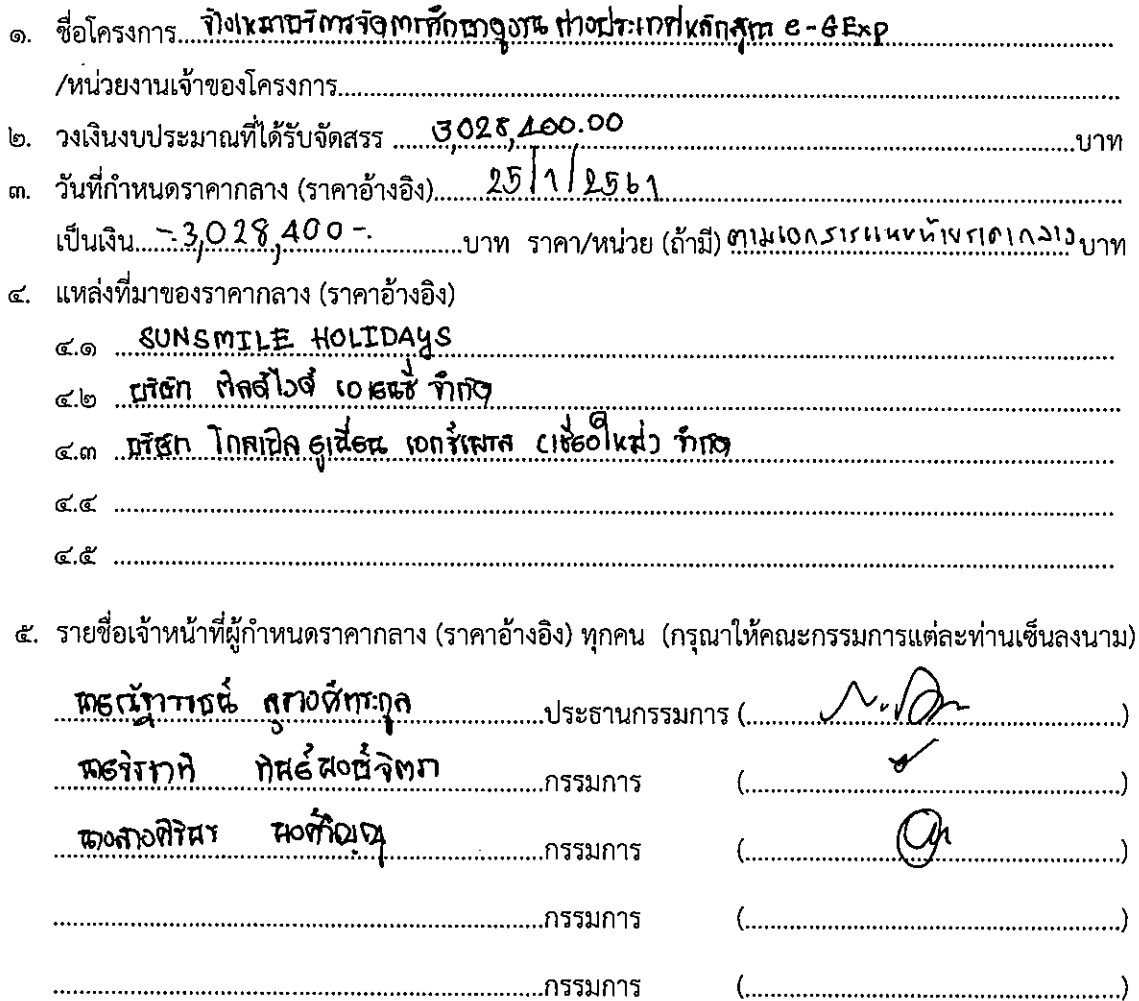 ๑. ชื่อโครงการ จ้างเหมาบริการจัดการศึกษาดูงาน ต่างประเทศหลักสูตร e-GExp
/หน่วยงานเจ้าของโครงการ
๒. วงเงินงบประมาณที่ได้รับจัดสรร 3,028,400.00 บาท
๓. วันที่กำหนดราคากลาง (ราคาอ้างอิง) 25/1/2561
เป็นเงิน -.3,028,400-. บาท ราคา/หน่วย (ถ้ามี) ตามเอกสารแนบท้ายราคากลาง บาท
๔. แหล่งที่มาของราคากลาง (ราคาอ้างอิง)
๔.๑ SUNSMILE HOLIDAYS
๔.๒ บริษัท เอเจนซี่ จำกัด
๔.๓ บริษัท โกลเบิล ยูเนี่ยน เอกซ์เพรส (เชียงใหม่) จำกัด
๔.๔
๔.๕
๕. รายชื่อเจ้าหน้าที่ผู้กำหนดราคากลาง (ราคาอ้างอิง) ทุกคน (กรุณาให้คณะกรรมการแต่ละท่านเซ็นลงนาม)
ประธานกรรมการ ( )
กรรมการ ( )
นางสาวศิริพร กรรมการ ( )
กรรมการ ( )
กรรมการ ( )